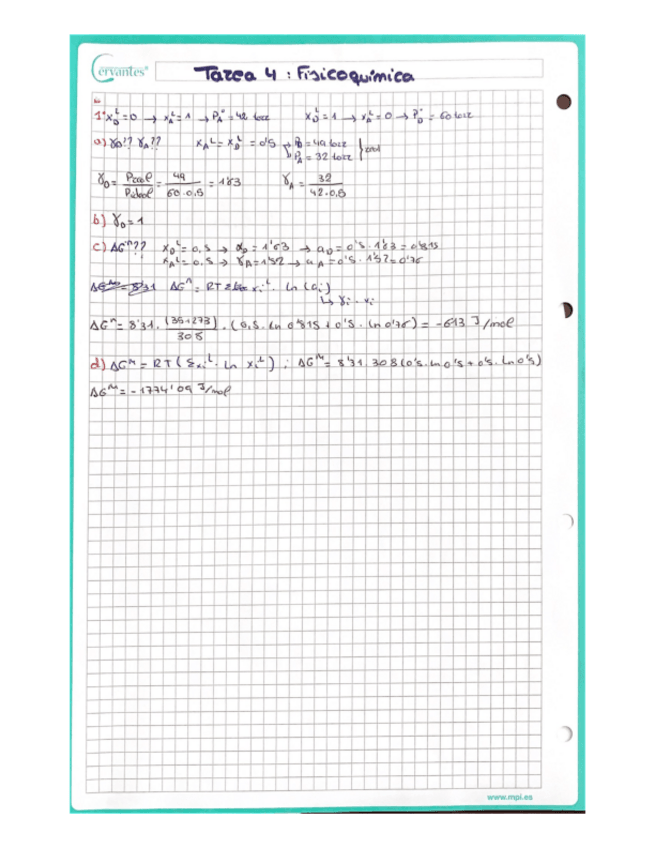 Cervantes®
Tarea 4 : Fisicoquímica
1º x_D^L = 0 → x_A^L = 1 → P_A° = 42 torr x_D^L = 1 → x_A^L = 0 → P_D° = 60 torr
a) γ_D?? γ_A?? x_A^L = x_D^L = 0'5 → P_D = 49 torr
P_A = 32 torr } real
γ_D = P real / P ideal = 49 / 60·0,5 = 1'63 γ_A = 32 / 42·0,5
b) γ_D = 1
c) ΔG^M?? x_D^L = 0,5 → γ_D = 1'63 → a_D = 0'5 · 1'63 = 0'815
x_A^L = 0,5 → γ_A = 1'52 → a_A = 0'5 · 1'52 = 0'76
ΔG^M = RT Σ x_i^L · Ln (a_i)
↳ γ_i · x_i
ΔG^M = 8'31 · (35+273) · (0,5 · Ln 0'815 + 0'5 · Ln 0'76) = -613 J/mol
308
d) ΔG^M = RT (Σ x_i^L · Ln x_i^L) ; ΔG^M = 8'31 · 308 (0's · Ln 0's + 0's · Ln 0's)
ΔG^M = -1774'09 J/mol
www.mpi.es